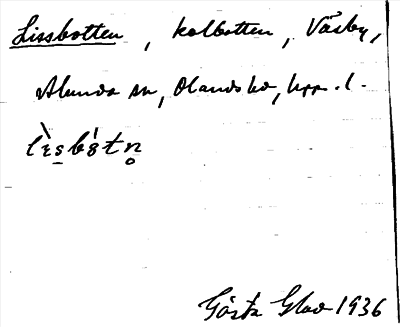 Lissbotten, kolbotten, Väsby,
Alunda sn, Olands hd, Upp. l.
lìs̠bótn̥
Gösta Glad 1936